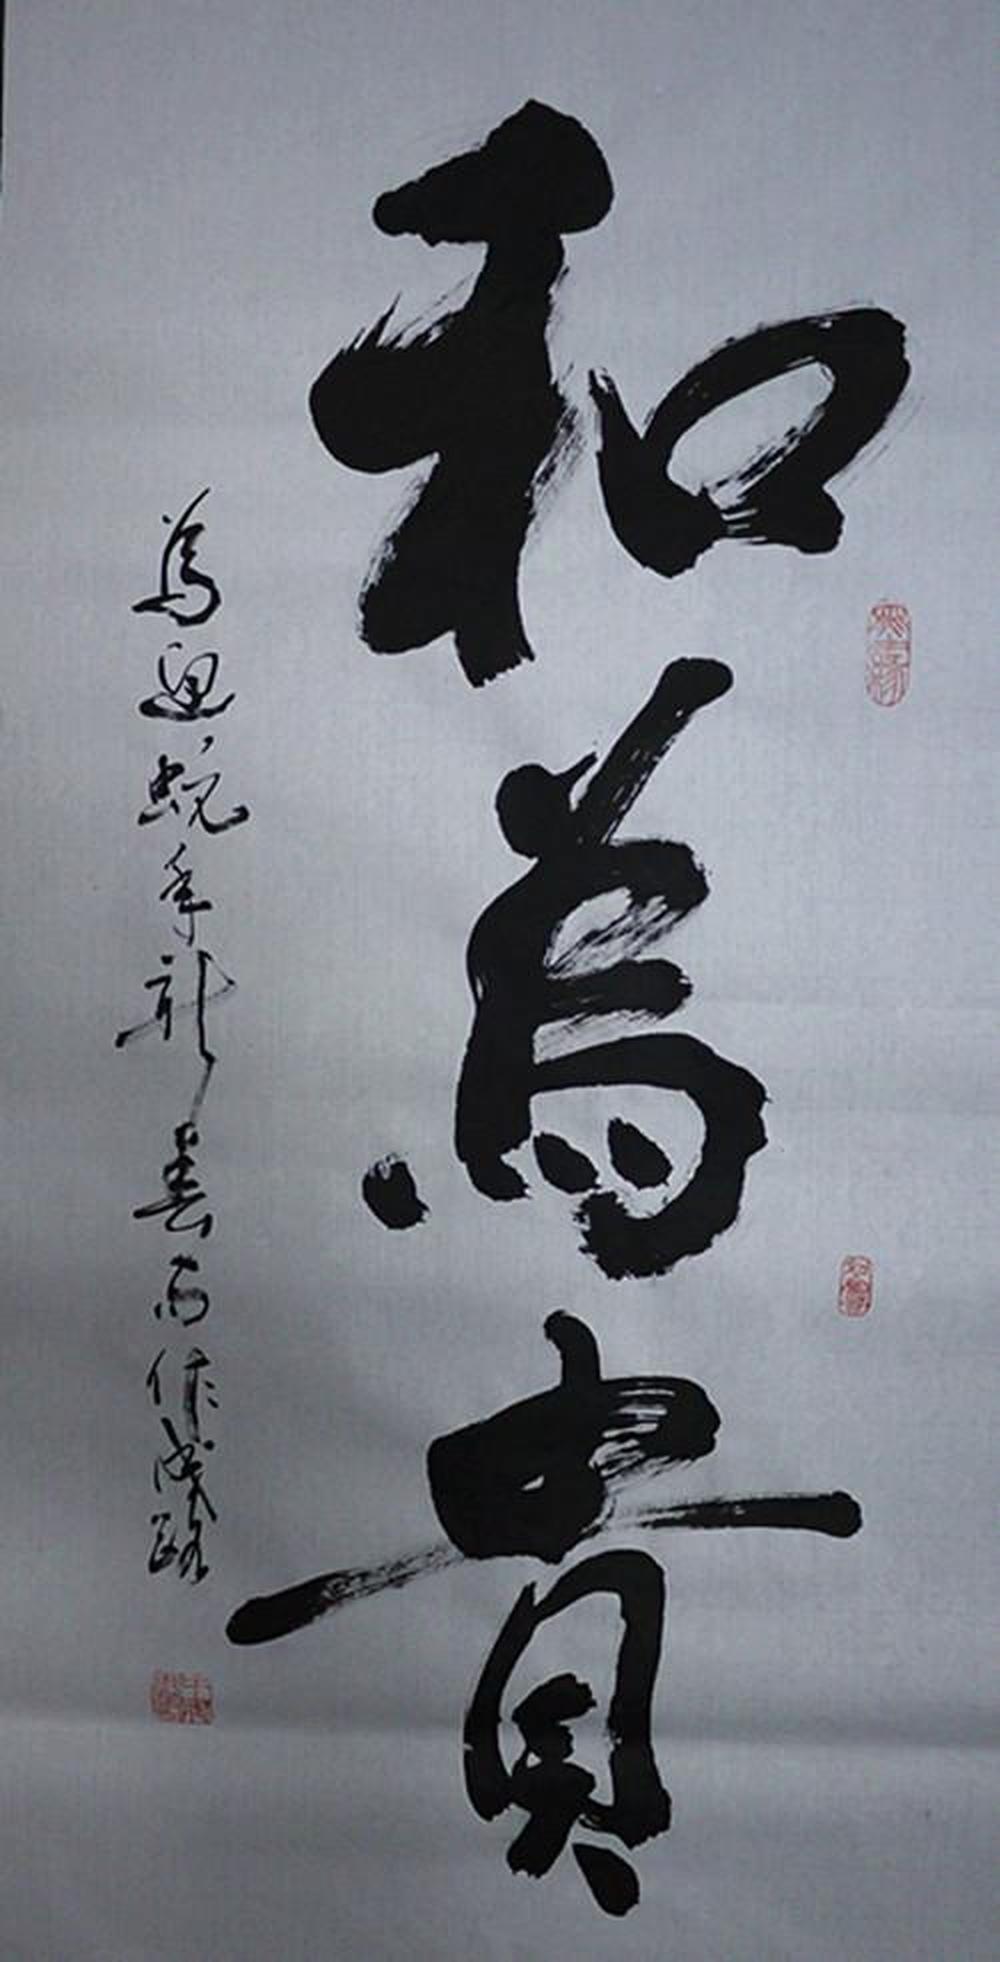 和為貴
為迎蛇年新春而作